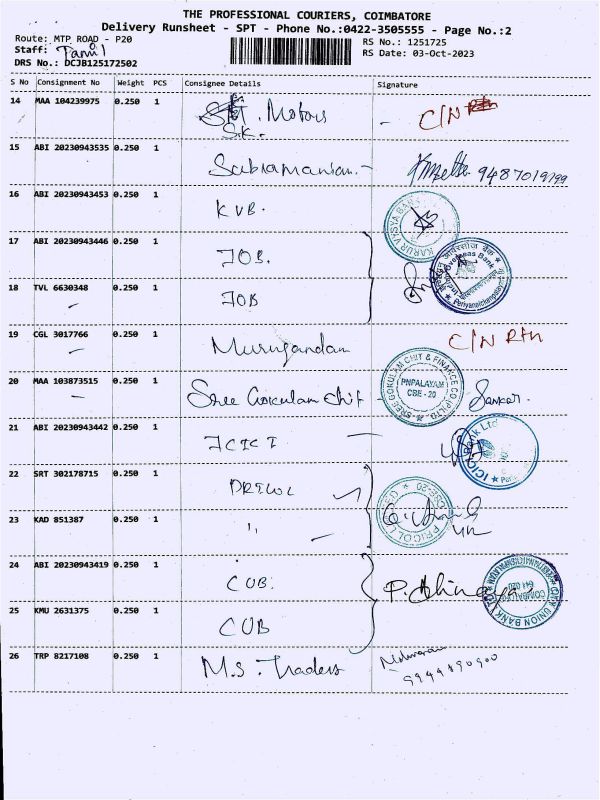 THE PROFESSIONAL COURIERS, COIMBATORE
Delivery Runsheet - SPT - Phone No.:0422-3505555 - Page No.:2
Route: MTP ROAD - P20
RS No.: 1251725
Staff: Tamil
RS Date: 03-Oct-2023
DRS No.: DCJB125172502
S No Consignment No Weight PCS Consignee Details Signature
14 MAA 104239975 0.250 1 Motors C/N Rtn
S.K.
15 ABI 20230943535 0.250 1 Subramanian 9487019199
16 ABI 20230943453 0.250 1 KVB. KARUR VYSYA BANK
17 ABI 20230943446 0.250 1 IOB. Overseas Bank
18 TVL 6630348 0.250 1 IOB
19 CGL 3017766 0.250 1 Murugandam C/N Rtn
20 MAA 103873515 0.250 1 Sree Gokulam Chit SREE GOKULAM CHIT & FINANCE CO (P) LTD PNPALAYAM CBE - 20 Sankar
21 ABI 20230943442 0.250 1 ICICI ICICI Bank Ltd
22 SRT 302178715 0.250 1 PRICOL PRICOL CBE-20
23 KAD 851387 0.250 1 "
24 ABI 20230943419 0.250 1 CUB. P. Abinaya CITY UNION BANK
25 KMU 2631375 0.250 1 CUB
26 TRP 8217108 0.250 1 M.S. Traders